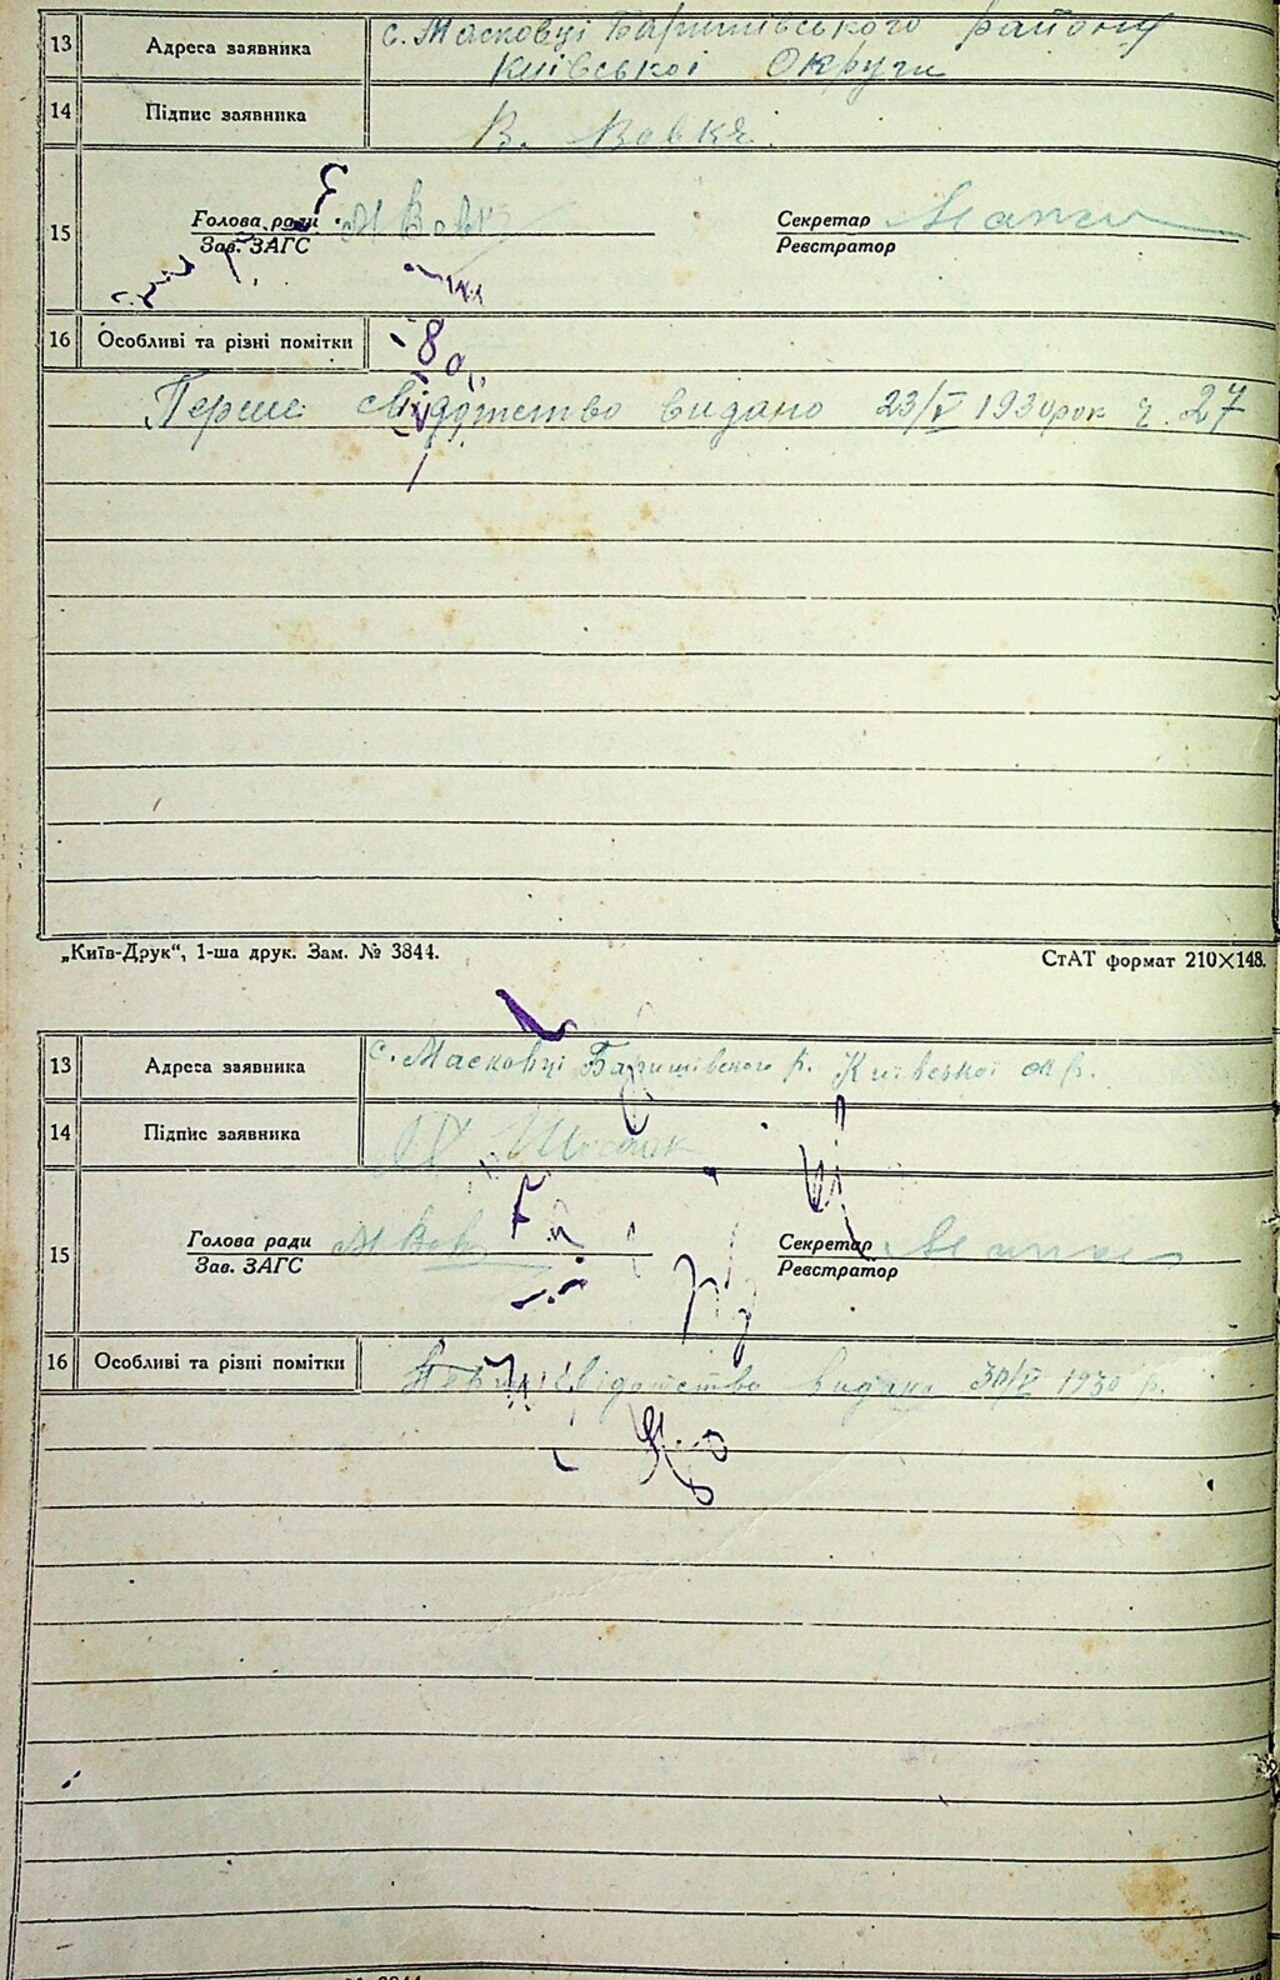 с. Масковці Баришівського району
13 Адреса заявника
Київської Округи
14 Підпис заявника В. Вовк
15 Голова ради М Вовк Секретар
Зав. ЗАГС Реєстратор
16 Особливі та різні помітки
Перше свідотство видано 23/V 1930 рок ч. 27
„Київ-Друк“, 1-ша друк. Зам. № 3844. СтАТ формат 210×148.
13 Адреса заявника с. Масковці Баришівського р. Київської окр.
14 Підпис заявника
15 Голова ради М Вовк Секретар
Зав. ЗАГС Реєстратор
16 Особливі та різні помітки Перше свідотство видано 30/V 1930 р.